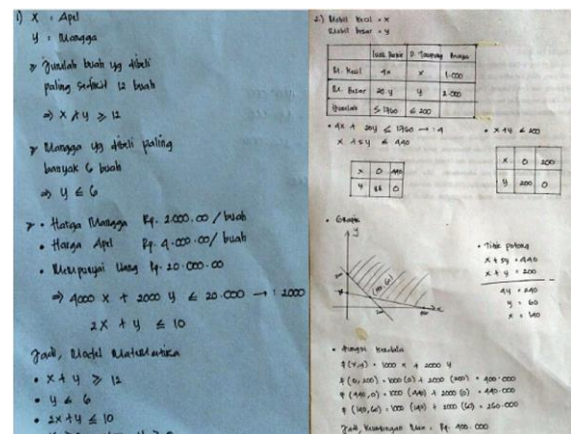 1) x = Apel
y = Mangga
» Jumlah buah yg dibeli
paling sedikit 12 buah
⇒ x + y ≥ 12
» Mangga yg dibeli paling
banyak 6 buah
⇒ y ≤ 6
» • Harga Mangga Rp. 2.000.00 / buah
• Harga Apel Rp. 4.000.00 / buah
• Mempunyai Uang Rp. 20.000.00
⇒ 4000 x + 2000 y ≤ 20.000 → : 2000
2x + y ≤ 10
Jadi, Model Matematika
• x + y ≥ 12
• y ≤ 6
• 2x + y ≤ 10
2.) Mobil Kecil = x
Mobil besar = y
Luas Parkir D. Tampung Biaya
M. Kecil 4x x 1.000
M. Besar 20 y y 2.000
Jumlah ≤ 1760 ≤ 200
• 4x + 20y ≤ 1760 → : 4
x + 5y ≤ 440
• x + y ≤ 200
x 0 440
y 88 0
x 0 200
y 200 0
• Grafik
y
x
• Titik potong
x + 5y = 440
x + y = 200
4y = 240
y = 60
x = 140
• Fungsi Kendala
f (x,y) = 1000 x + 2000 y
f (0, 200) = 1000 (0) + 2000 (200) = 400.000
f (440, 0) = 1000 (440) + 2000 (0) = 440.000
f (140, 60) = 1000 (140) + 2000 (60) = 260.000
Jadi, Keuntungan Max = Rp. 400.000